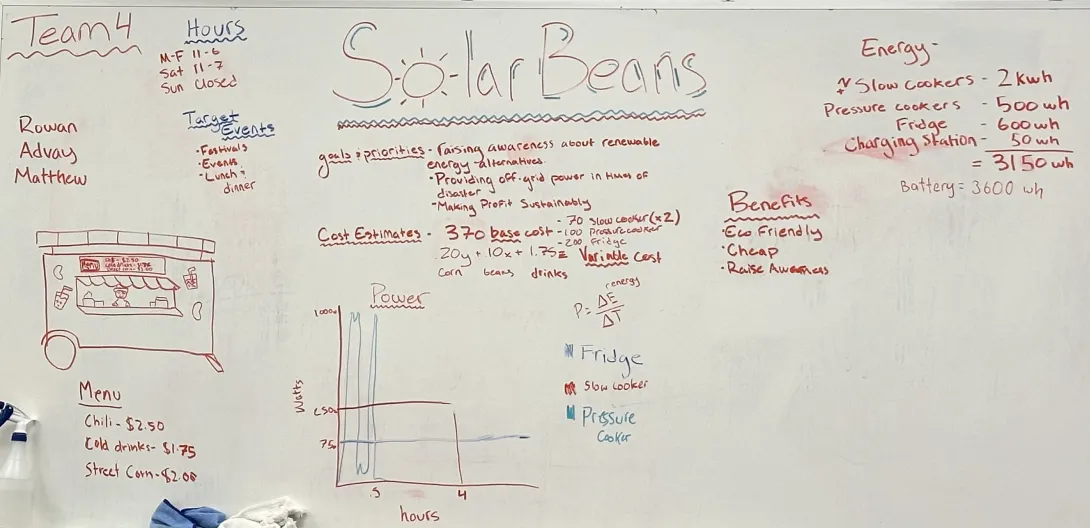 Team 4
Hours
M-F 11-6
Sat 11-7
Sun Closed
Rowan
Advay
Matthew
Target
Events
• Festivals
• Events
• Lunch
dinner
Solar Beans
goals & priorities - raising awareness about renewable
energy alternatives.
• Providing off-grid power in times of
disaster
• Making Profit Sustainably
Cost Estimates - 370 base cost
- 70 Slow cooker (x2)
- 100 Pressure cooker
- 200 Fridge
.20y + 10x + 1.75z Variable Cost
corn beans drinks
Energy -
Slow cookers - 2 kwh
Pressure cookers - 500 wh
Fridge - 600 wh
Charging Station - 50 wh
= 3150 wh
Battery = 3600 wh
Benefits
• Eco Friendly
• Cheap
• Raise Awarness
Menu
Menu
Chili - $2.50
Cold drinks - $1.75
Street Corn - $2.00
Power
1000w
250w
75w
Watts
.5
4
hours
energy
P = ΔE
ΔT
Fridge
Slow cooker
Pressure
Cooker